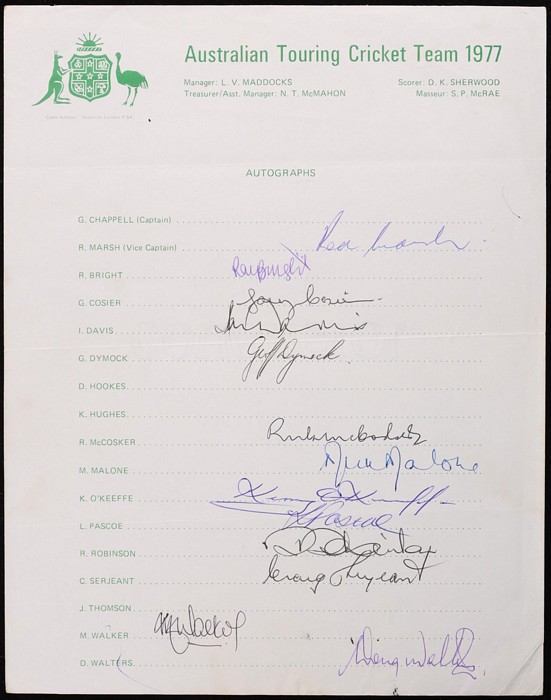 Australian Touring Cricket Team 1977
Manager: L. V. MADDOCKS Scorer: D. K. SHERWOOD
Treasurer/Asst. Manager: N. T. McMAHON Masseur: S. P. McRAE
AUTOGRAPHS
G. CHAPPELL (Captain)
R. MARSH (Vice Captain) Rod Marsh
R. BRIGHT Ray Bright
G. COSIER Gary Cosier
I. DAVIS Ian Davis
G. DYMOCK Geoff Dymock
D. HOOKES
K. HUGHES
R. McCOSKER
M. MALONE Mick Malone
K. O'KEEFFE
L. PASCOE Pascoe
R. ROBINSON
C. SERJEANT Craig Serjeant
J. THOMSON
M. WALKER M Walker
D. WALTERS Doug Walters